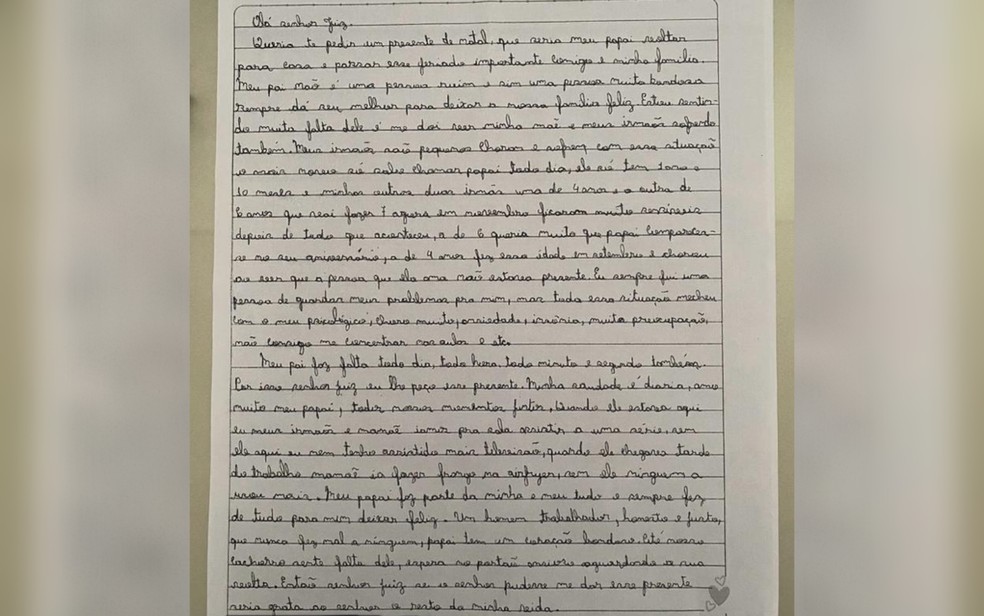 Olá senhor juiz.
Queria te pedir um presente de natal, que seria meu papai voltar
para casa e passar esse feriado importante comigo e minha família.
Meu pai não é uma pessoa ruim e sim uma pessoa muito bondosa
sempre dá seu melhor para deixar a nossa família feliz. Estou sentin-
do muita falta dele e me doi ver minha mãe e meus irmãos sofrendo
também. Meus irmãos são pequenos choram e sofrem com essa situação
o mais novo só sabe chamar papai todo dia, ele só tem 1 ano e
10 meses e minhas outras duas irmãs uma de 4 anos e a outra de
6 anos que vai fazer 7 agora em novembro ficaram muito sensíveis
depois de tudo que aconteceu, a de 6 queria muito que papai comparecer-
se no seu aniversário, a de 4 anos fez essa idade em setembro e chorou
ao ver que a pessoa que ela ama não estava presente. Eu sempre fui uma
pessoa de guardar meus problemas pra mim, mas toda essa situação mecheu
com o meu psicológico, choro muito, ansiedade, insônia, muita preocupação,
não consigo me concentrar nas aulas e etc.
Meu pai faz falta todo dia, toda hora, todo minuto e segundo também.
Por isso senhor juiz eu lhe peço esse presente. Minha saudade é diaria, amo
muito meu papai, todos nossos momentos juntos. Quando ele estava aqui
eu meus irmãos e mamãe iamos pra sala assistir a uma série, sem
ele aqui eu nem tenho assistido mais televisão, quando ele chegava tarde
do trabalho mamãe ia fazer frango na airfryer, sem ele ninguem a
usou mais. Meu papai faz parte da minha e meu tudo e sempre fez
de tudo para mim deixar feliz. Um homem trabalhador, honesto e justo,
que nunca fez mal a ninguem, papai tem um coração bondoso. Até nosso
cachorro sente falta dele, espera no portão ansioso aguardando a sua
volta. Então senhor juiz se o senhor pudesse me dar esse presente
seria grata ao senhor o resto da minha vida.